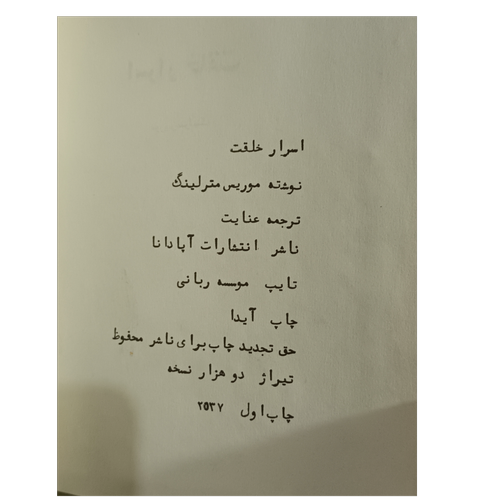 اسرار خلقت
نوشته موریس مترلینگ
ترجمه عنایت
ناشر انتشارات آپادانا
تایپ موسسه ربانی
چاپ آیدا
حق تجدید چاپ برای ناشر محفوظ
تیراژ دو هزار نسخه
چاپ اول ۲۵۳۷